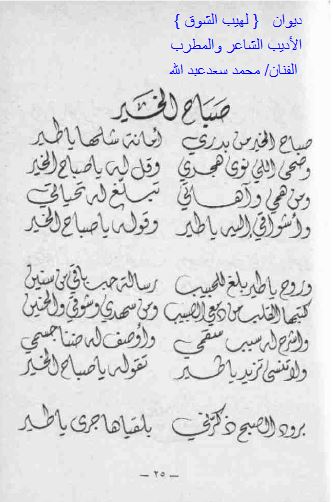 ديوان { لهيب الشوق }
الأديب الشاعر والمطرب
الفنان/ محمد سعد عبد الله
صباح الخير
صباح الخير من بدري أمانة شلها ياطير
وضحى اللي نوى هجري وقل له ياصباح الخير
ومن همي وآهاتي تبلغ له تحياتي
وأشواقي إليه ياطير وقوله ياصباح الخير
وروح ياطير بلغ للحبيب رسالة حب باقي من سنين
كتبها القلب من دمعي الصبيب ومن سهدي وشوقي والحنين
واشرح له سبب سقمي وأوصف له ضنا جسمي
ولا تنسى تزيد ياطير تقوله ياصباح الخير
برود الصبح ذكرني بلقياها جرى ياطير
— ٢٥ —